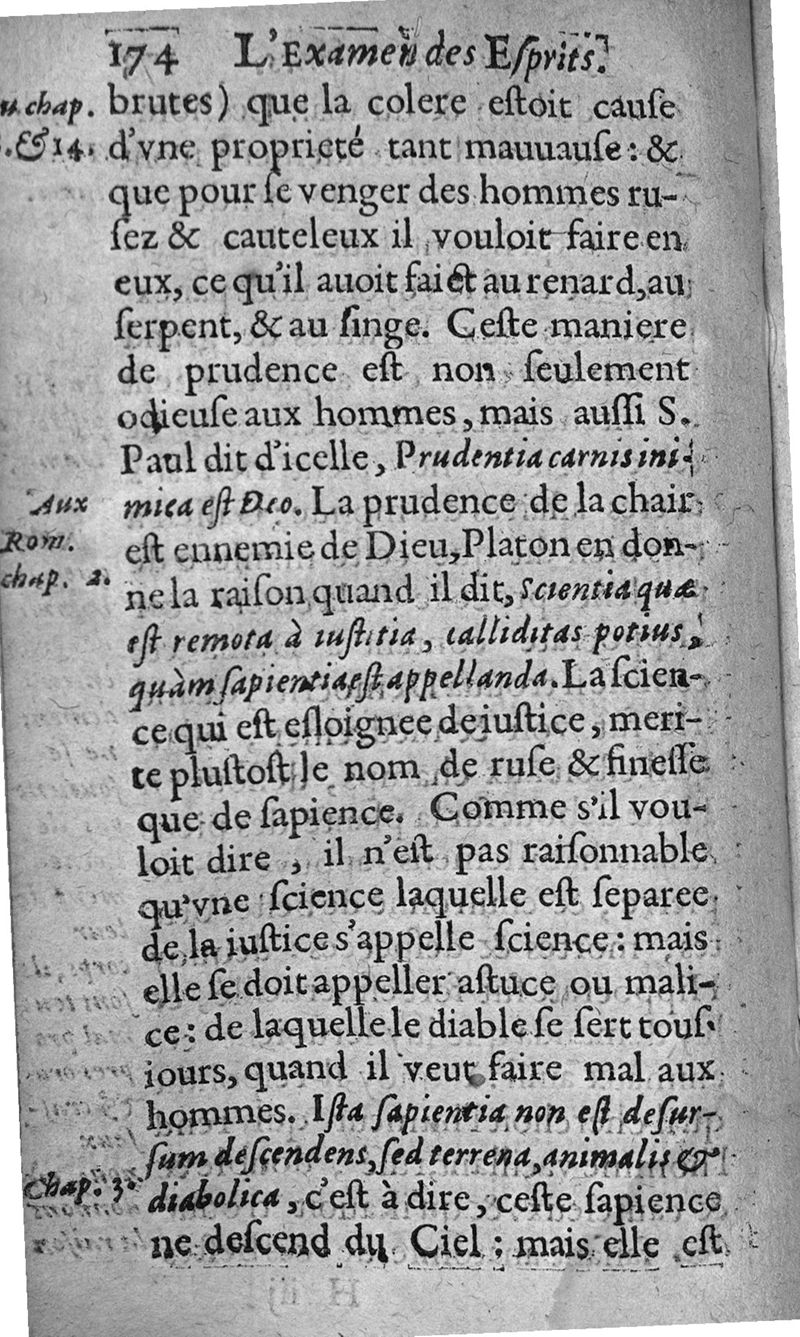 174 L'Examen des Esprits.
u chap. brutes) que la colere eſtoit cauſe
. &14. d'vne proprieté tant mauuauſe : &
que pour ſe venger des hommes ru-
ſez & cauteleux il vouloit faire en
eux, ce qu'il auoit faict au renard, au
ſerpent, & au ſinge. Ceſte maniere
de prudence eſt non ſeulement
odieuſe aux hommes, mais auſſi S.
Paul dit d'icelle, Prudentia carnis ini-
Aux mica eſt Deo. La prudence de la chair
Rom. eſt ennemie de Dieu, Platon en don-
chap. 2. ne la raiſon quand il dit, Scientia quæ
eſt remota à iuſtitia, calliditas potius,
quàm ſapientia eſt appellanda. La ſcien-
ce qui eſt eſloignee de iuſtice, meri-
te pluſtoſt le nom de ruſe & fineſſe
que de ſapience. Comme s'il vou-
loit dire, il n'eſt pas raiſonnable
qu'vne ſcience laquelle eſt ſeparee
de la iuſtice s'appelle ſcience : mais
elle ſe doit appeller aſtuce ou mali-
ce : de laquelle le diable ſe ſert touſ-
iours, quand il veut faire mal aux
hommes. Iſta ſapientia non eſt deſur-
ſum deſcendens, ſed terrena, animalis &
Chap. 3. diabolica, c'eſt à dire, ceſte ſapience
ne deſcend du Ciel ; mais elle eſt